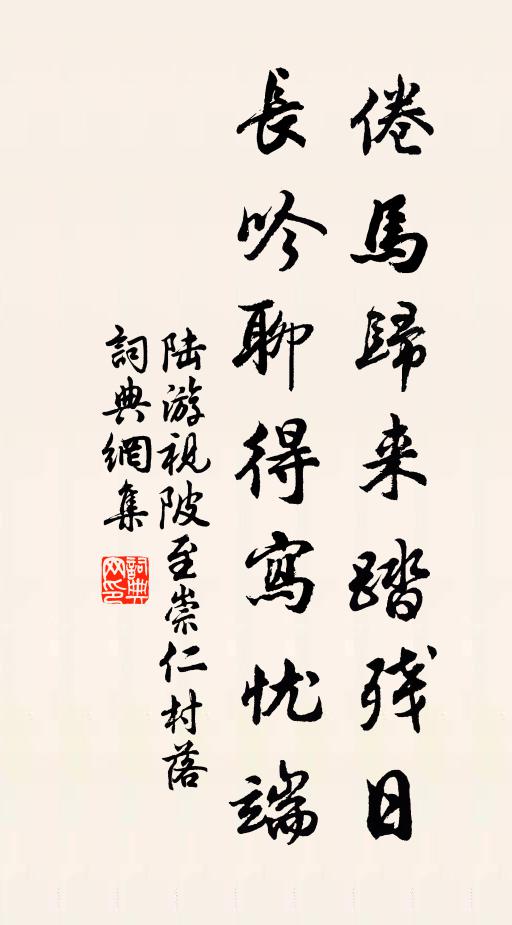 倦馬歸来踏残日
長吟聊得寫忧端
陆游視陂至崇仁村落
詞典網集
詞典
网印